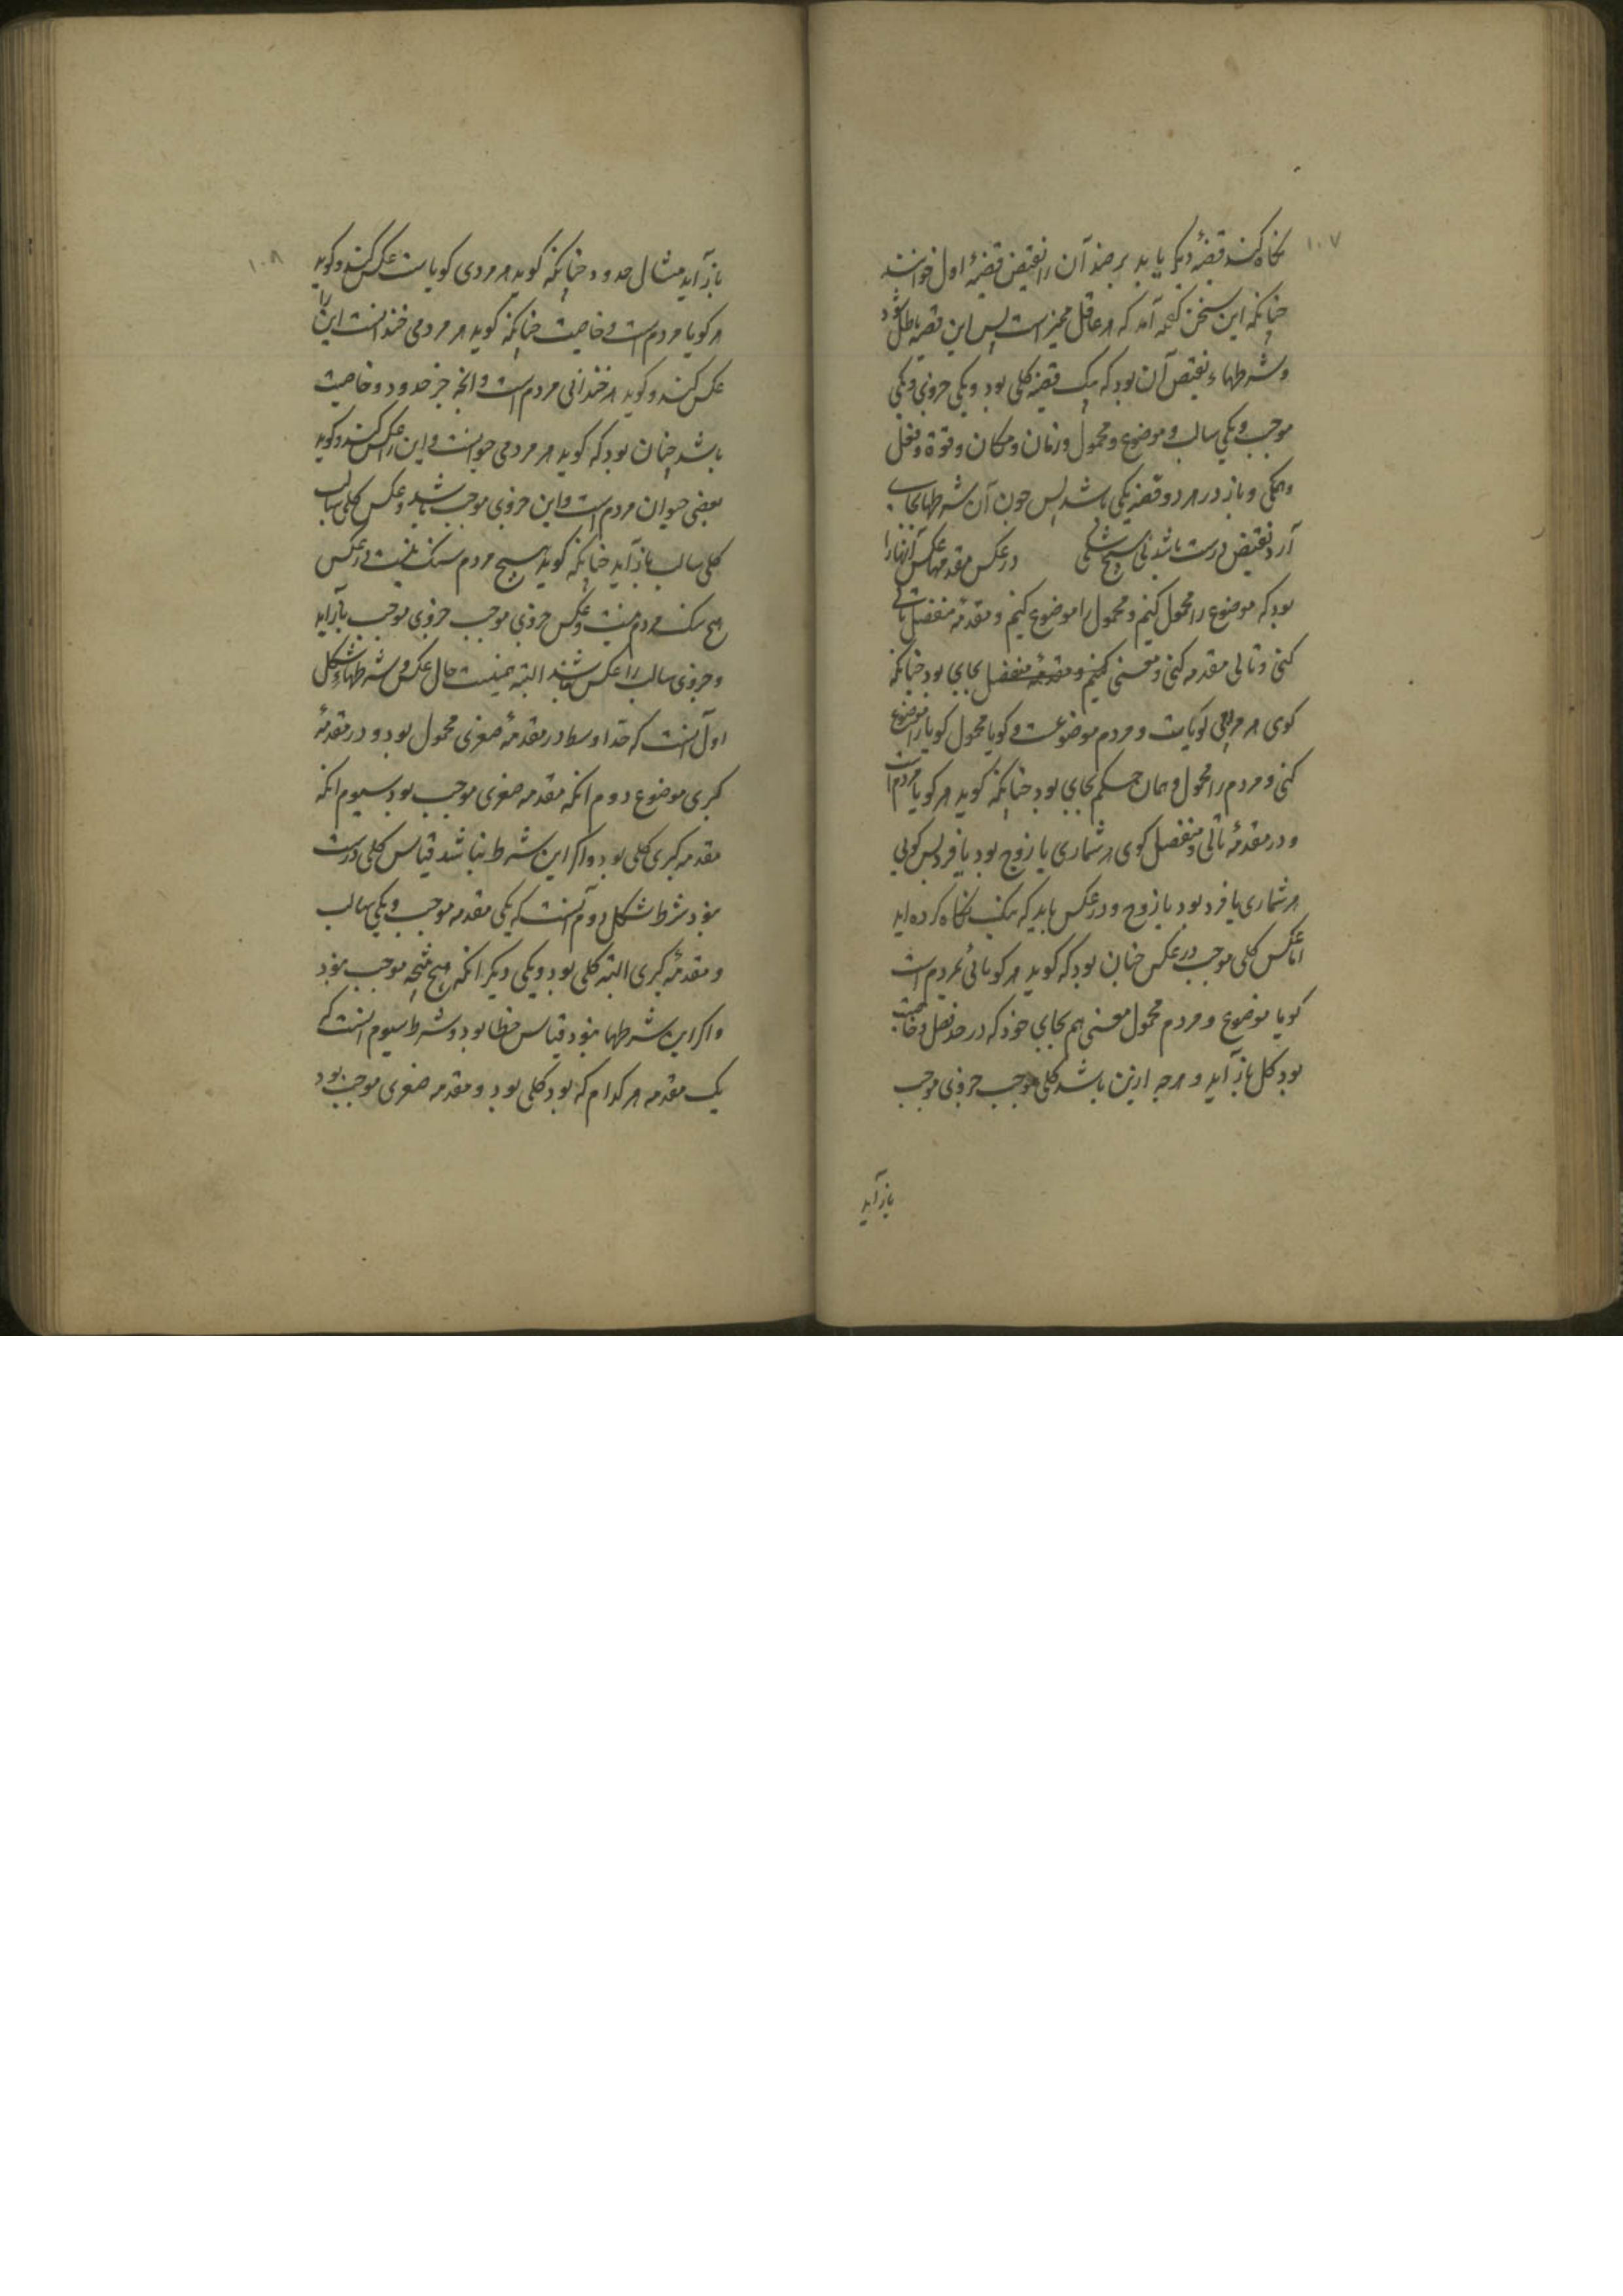 ۱۰۷
نکاه کنند قضیهٔ دیکر یابد بر ضد آن را نقیض قضیهٔ اول خوانند
چنانکه این سخن کفته آمد که هر عاقل ممیز است پس این قضیه باطل شود
و شرطهاء نقیض آن بود که یک قضیه کلی بود و یکی جزوی و یکی
موجب و یکی سالب و موضوع و محمول و زمان و مکان و قوة و فعل
و همکی و باز در هر دو قضیه یکی باشد پس چون آن شرطها بجای
آرد نقیض درست باشد بی هیچ شکی در عکس مقدمها عکس آنها را
بود که موضوع را محمول کنیم و محمول را موضوع کنیم و مقدمه منفصل تالی
کنی و تالی مقدمه کنی و معنی بجای بود چنانکه
کوی هر مردمی کویاست و مردم موضوعست و کویا محمول کویا را موضوع
کنی و مردم را محمول و همان حکم بجای بود چنانکه کوید هر کویا مردم است
و در مقدمهٔ تالی و منفصل کوی هر شماری یا زوج بود یا فرد پس کویی
هر شماری یا فرد بود یا زوج و در عکس باید که نیک نکاه کرده اید
اما عکس کلی موجب در عکس چنان بود که کوید هر کویائی مردم است
کویا موضوع و مردم محمول معنی هم بجای خود که در حد فصل و خاصیت
بود کل باز آید و هرچه ازین باشد کلی موجب جزوی موجب
باز آید
۱۰۸
باز آید مثال حدود چنانکه کوید هر مردی کویاست عکس کنند و کوید
هر کویا مردم است و خاصیت چنانکه کوید هر مردمی خندانست این را
عکس کنند و کوید هر خندانی مردم است و انچه جز حدود و خاصیت
باشد چنان بود که کوید هر مردمی حیوانست و این را عکس کنند و کوید
بعضی حیوان مردم است و این جزوی موجب باشد و عکس کلی سالب
کلی سالب باز آید چنانکه کوید هیچ مردم سنک نیست و در عکس
هیچ سنک مردم نیست و عکس جزوی موجب جزوی موجب باز آید
و جزوی سالب را عکس نباشد البته اینست حال عکس و شرطهاء شکل
اول آنست که حد اوسط در مقدمهٔ صغری محمول بود و در مقدمهٔ
کبری موضوع دوم انکه مقدمه صغری موجب بود سیوم انکه
مقدمه کبری کلی بود و اکر این شرط نباشد قیاس کلی درست
نبود شرط شکل دوم آنست که یکی مقدمه موجب و یکی سالب
و مقدمهٔ کبری البته کلی بود و یکی دیکر انکه هیچ نتیجه موجب نبود
و اکر این شرطها نبود قیاس خطا بود و شرط سیوم انست که
یک مقدمه هر کدام که بود کلی بود و مقدمه صغری موجب بود